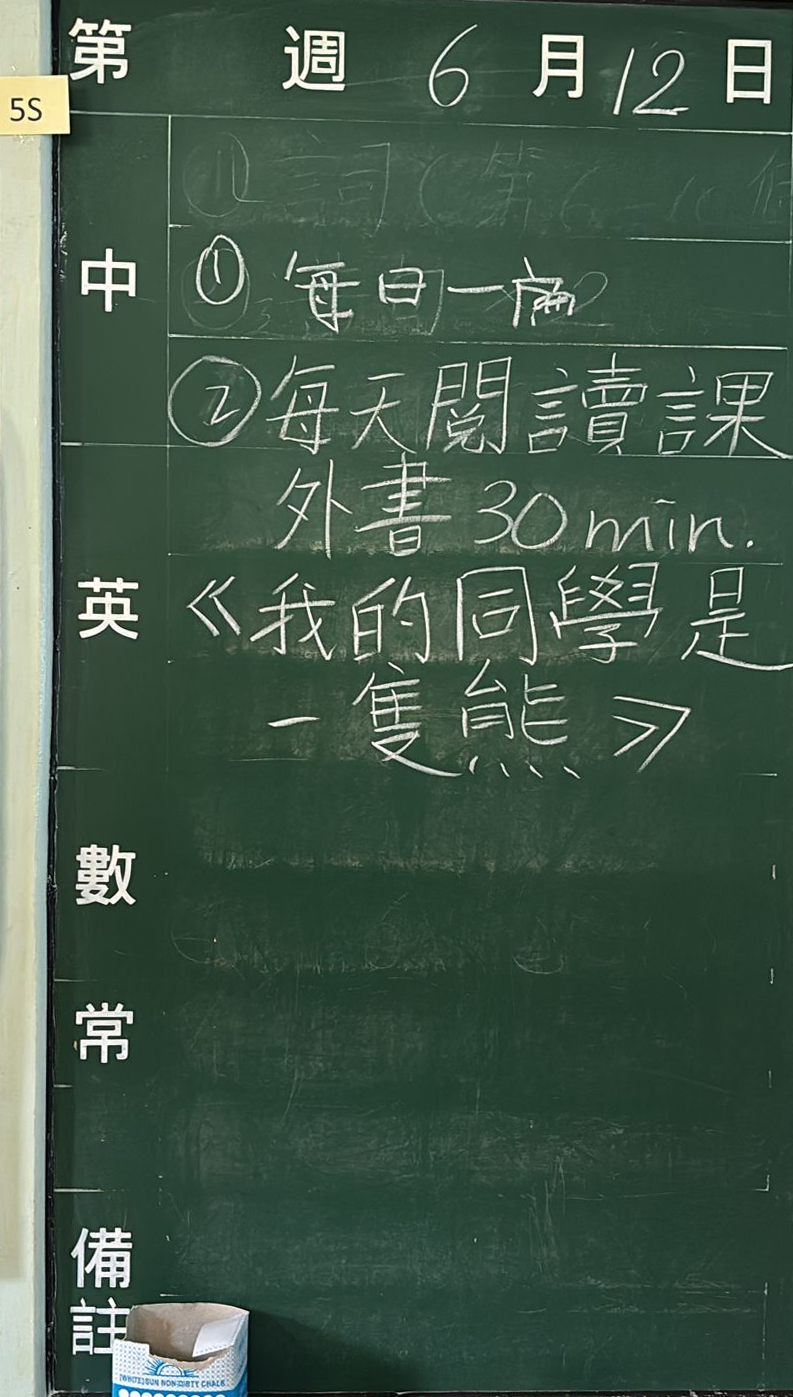 第 週 6 月 12 日
5S
中
① 每日一篇
② 每天閱讀課
外書 30 min.
英
《我的同學是
一隻熊》
數
常
備
註